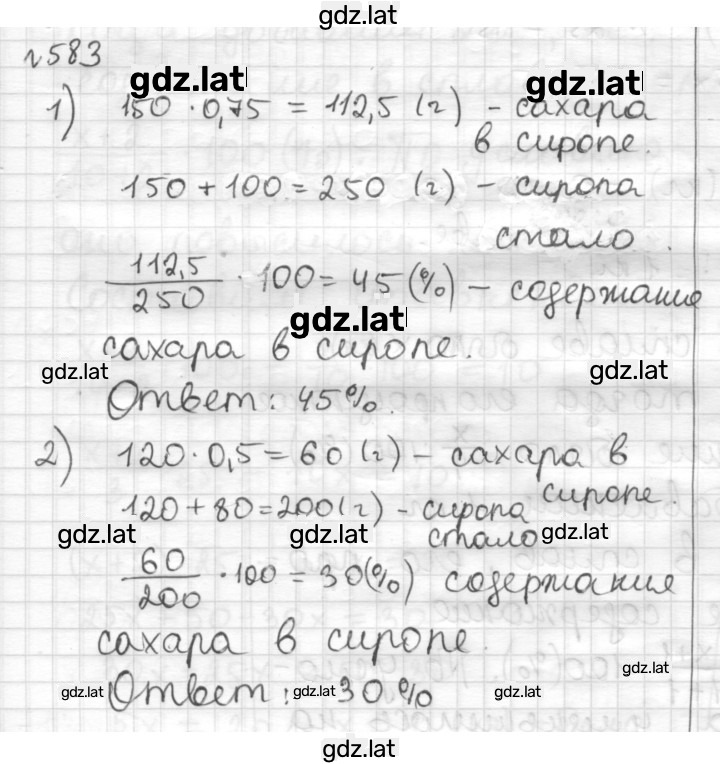 gdz.lat
№583
gdz.lat gdz.lat
1) 150 · 0,75 = 112,5 (г) - сахара
в сиропе.
150 + 100 = 250 (г) - сиропа
стало.
112,5/250 · 100 = 45 (%) - содержание
gdz.lat
сахара в сиропе.
gdz.lat gdz.lat
Ответ: 45%.
2) 120 · 0,5 = 60 (г) - сахара в
сиропе.
120 + 80 = 200 (г) - сиропа
gdz.lat gdz.lat стало gdz.lat
60/200 · 100 = 30 (%) содержание
сахара в сиропе.
gdz.lat
gdz.lat Ответ: gdz.lat 30% gdz.lat
gdz.lat